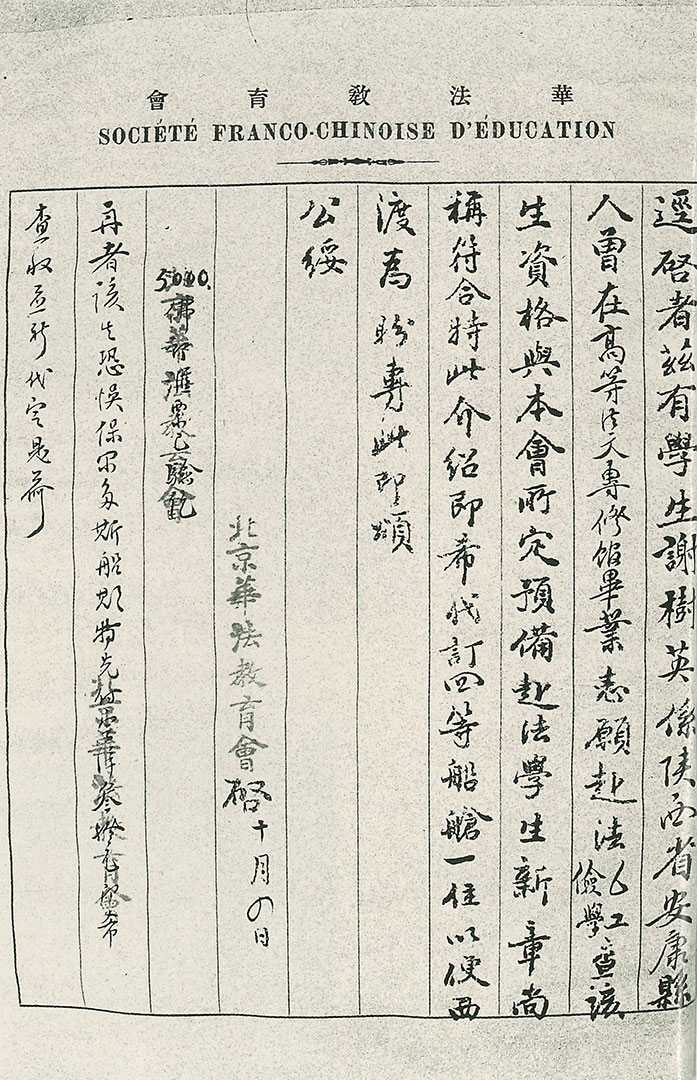 華法教育會
SOCIÉTÉ FRANCO-CHINOISE D'ÉDUCATION
逕啓者茲有學生謝樹英係陝西省安康縣
人曾在高等法文專修館畢業志願赴法工儉學查該
生資格與本會所定預備赴法學生新章尚
稱符合特此介紹即希代訂四等船艙一位以便西
渡為盼專此即頌
公綏
北京華法教育會啓十月の日
5000佛郎滙票已驗訖
再者該生恐悞保尔多斯船期特先
查收並祈代定是荷